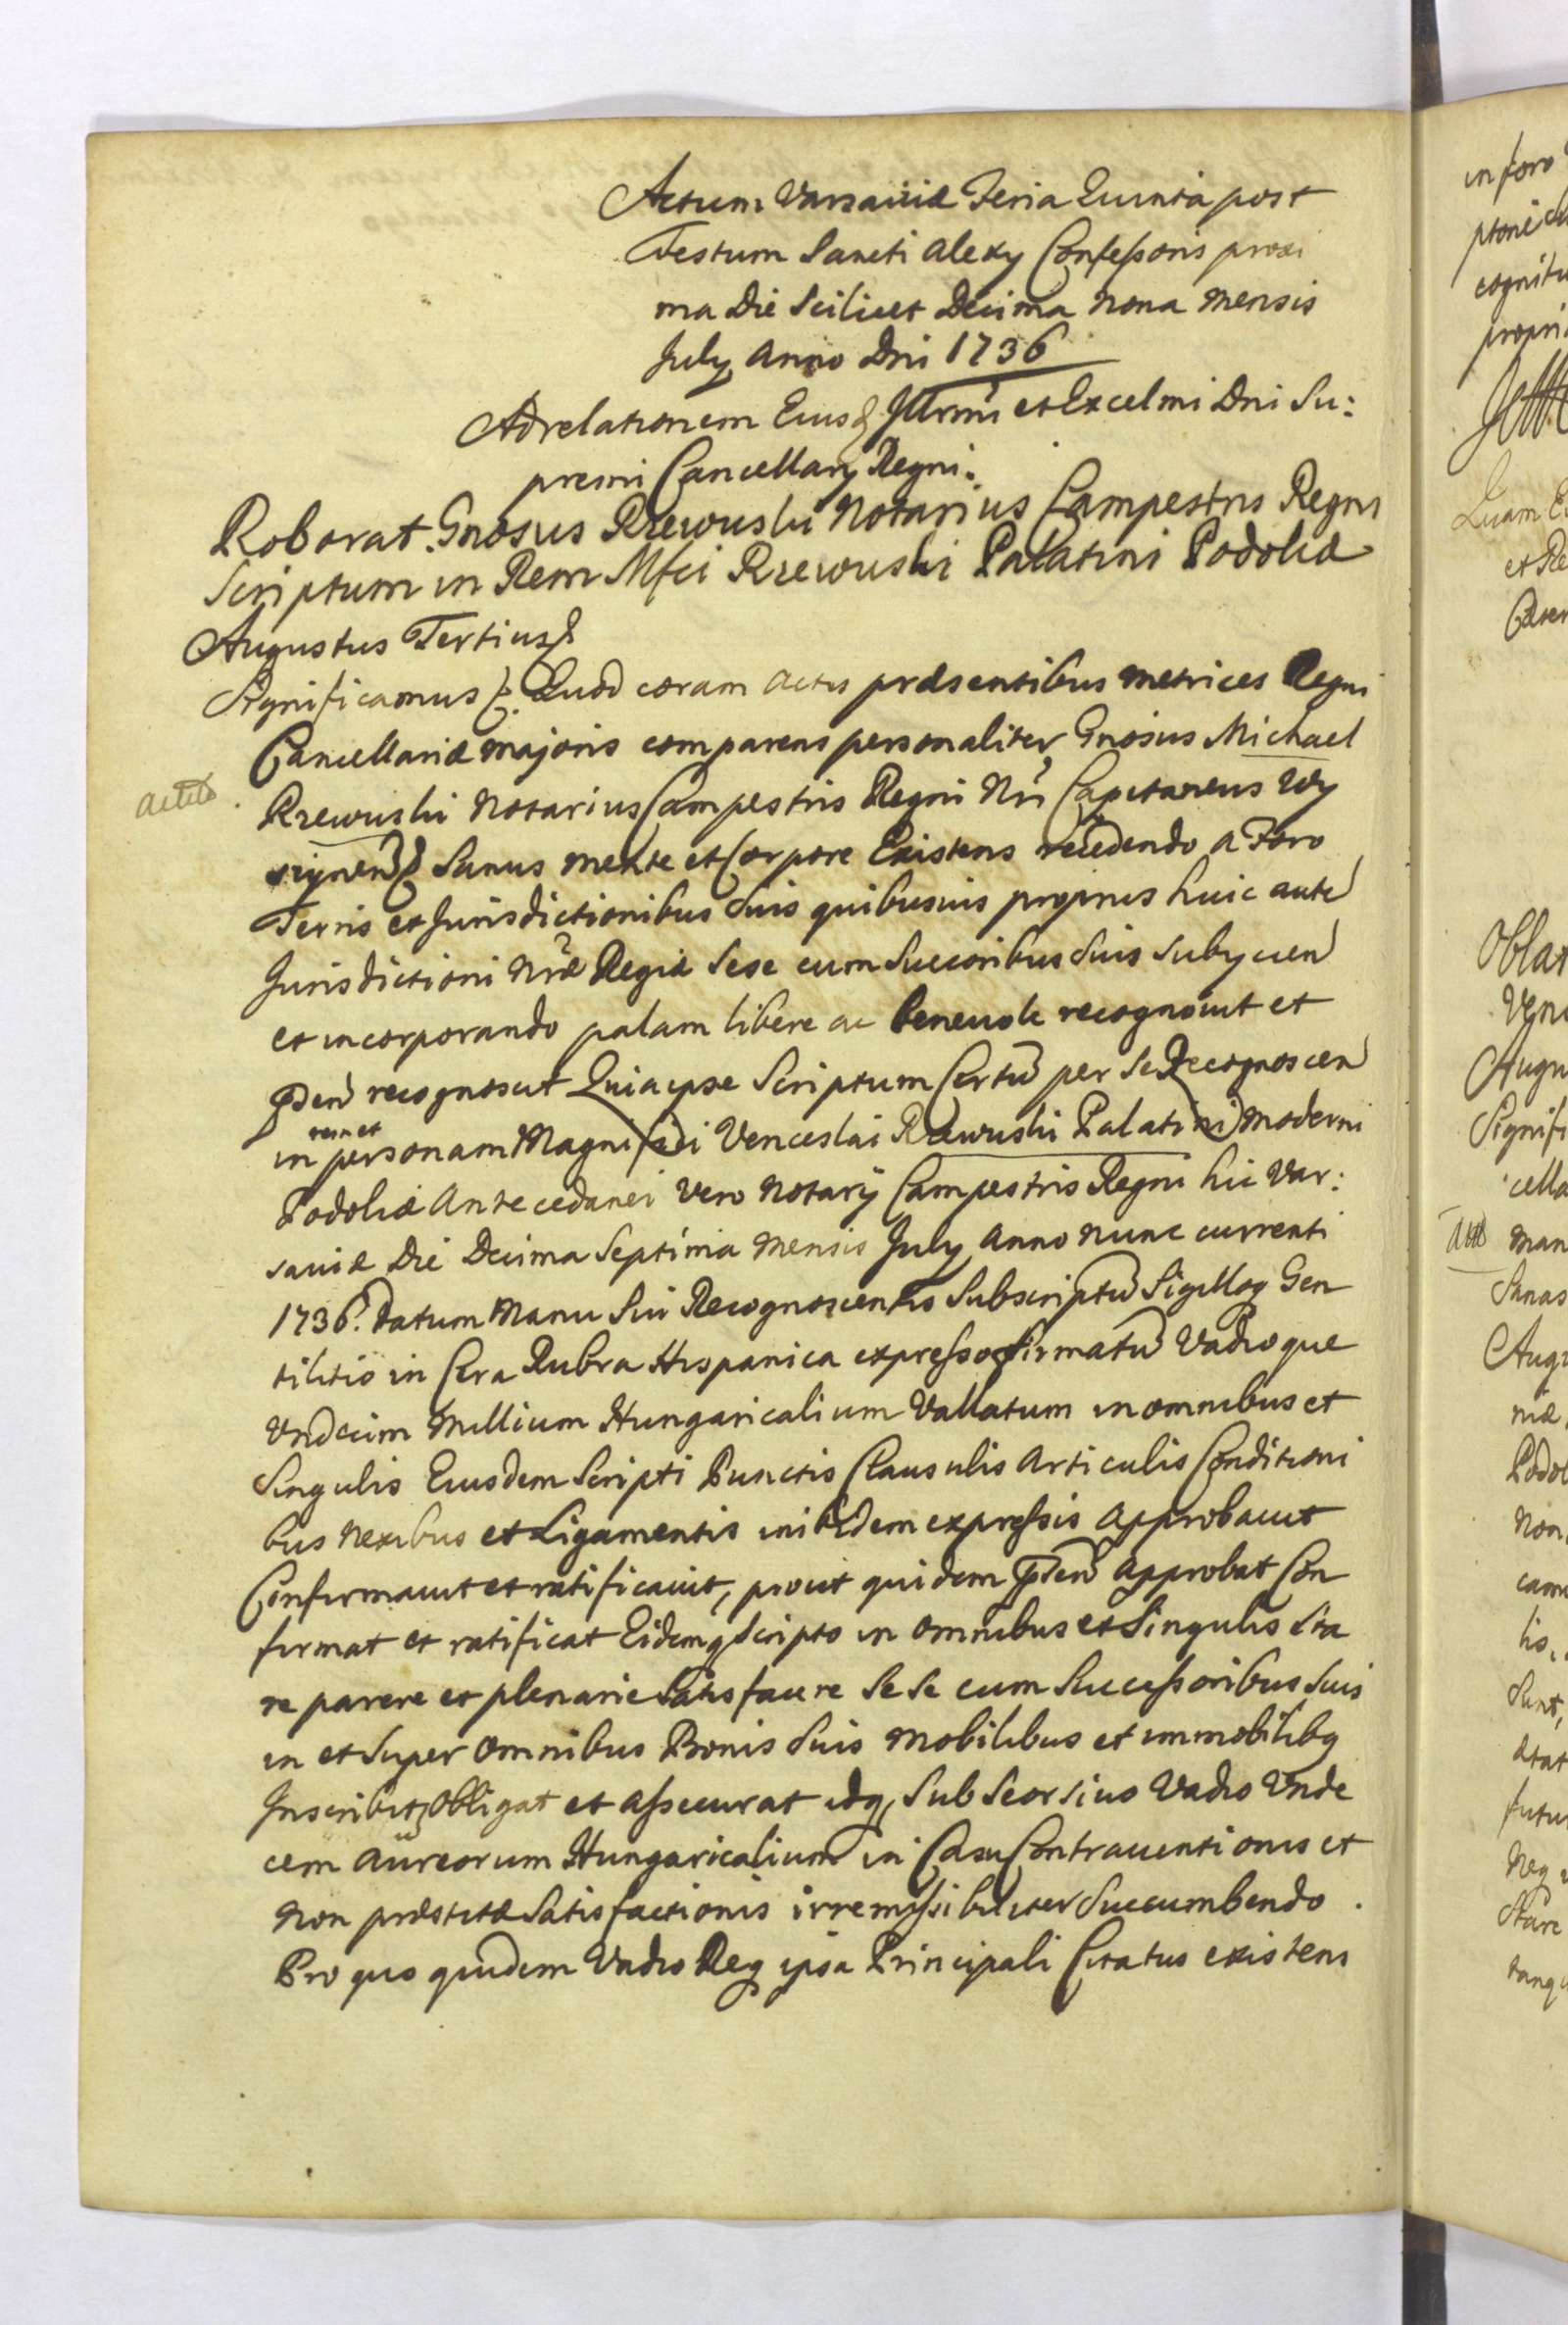 Actum Varsaviæ Feria Quinta post
Festum Sancti Alexy Confessoris proxi
ma Die Scilicet Decima Nona Mensis
July Anno Dni 1736
Ad relationem Eiusd Illrmi et Excelmi Dni Su:
premi Cancellary Regni.
Roborat Gnosus Rzewuski Notarius Campestris Regni
Scriptum in Rem Mfci Rzewuski Palatini Podoliæ
Augustus Tertius
Significamus Quod coram Actis præsentibus Metrices Regni
Cancellariæ majoris comparens personaliter Gnosus Michael
Rzewuski Notarius Campestris Regni Nri Capitaneus Wy
Sanus mente et Corpore Existens recedendo a Foro
Terris et Jurisdictionibus Suis quibusuis proprius huic aute
Jurisdictioni Nræ Regiæ Sese cum Succoribus Suis Subycien
et incorporando palam libere ac beneuole recognouit et
pden recognoscit Quia ipse Scriptum Certu per Se Recognoscen
rem et
in personam Magnifici Venceslai Rzewuski Palatini moderni
Podoliæ Antecedanei vero Notarÿ Campestris Regni hic Var:
saviæ Die Decima Septima Mensis July Anno nunc currenti
1736. Datum Manu Sui Recognoscentis Subscriptu Sigilloq Gen
tilitio in Cera Rubra Hispanica expresso firmatu Vadioque
Vndecim Millium Hungaricalium Vallatum in omnibus et
Singulis Eiusdem Scripti Punctis Clausulis Articulis Conditioni
bus Nexibus et Ligamentis inibidem expressis Approbauit
Confirmauit et ratificauit, prout quidem pden Approbat Con
firmat et ratificat Eidemq Scripto in omnibus et Singulis Sta
re parere et plenarie Satisfacere Sese cum Successoribus Suis
in et Super omnibus Bonis Suis Mobilibus et immobilibq
Inscribit, Obligat et assecurat idq, Sub Seorsiuo Vadio Vnde
cem Aureorum Hungaricalium in Casu Contrauentionis et
Non præstitæ Satisfactionis irremissibiliter Succumbendo.
Pro quo quidem Vadio Req ipsa Principali Citatus existens
in foro
cognitu
propri
Quam
et Re
Oblat
Augu
Signifi
cella
man
Sanas
Augu
niæ
Podol
Non
cam
lis,
Sunt,
ætat
futu
Neq
Stare
tanq